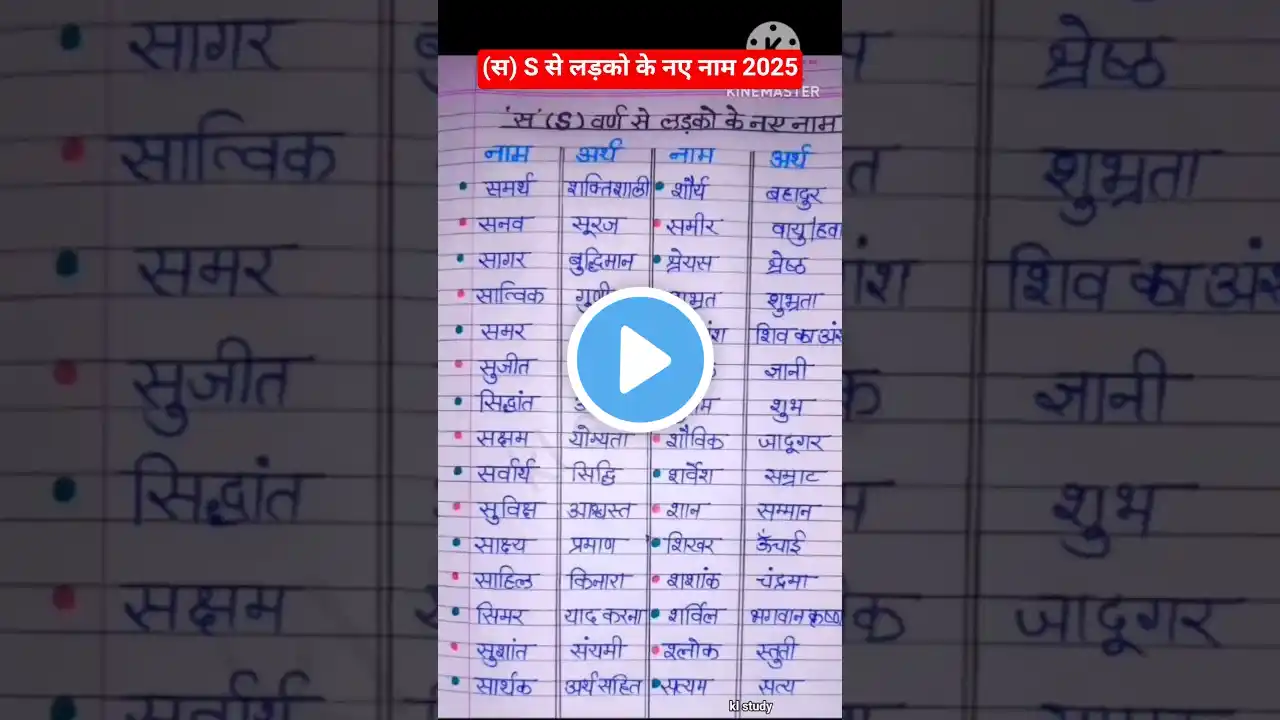 (स) S से लड़को के नए नाम 2025
KINEMASTER
'स' (S) वर्ण से लड़को के नए नाम
नाम अर्थ नाम अर्थ
समर्थ शक्तिशाली शौर्य बहादुर
सनव सूरज समीर वायु/हवा
सागर बुद्धिमान श्रेयस श्रेष्ठ
सात्विक शुभ्रता
समर शिव का अंश
सुजीत ज्ञानी
सिद्धांत शुभ
सक्षम योग्यता शौविक जादूगर
सर्वार्थ सिद्धि शर्वेश सम्राट
सुविक्ष आश्वस्त शान सम्मान
साक्ष्य प्रमाण शिखर ऊँचाई
साहिल किनारा शशांक चंद्रमा
सिमर याद करना शर्विल भगवान कृष्ण
सुशांत संयमी श्लोक स्तुती
सार्थक अर्थ सहित सत्यम सत्य
kl study